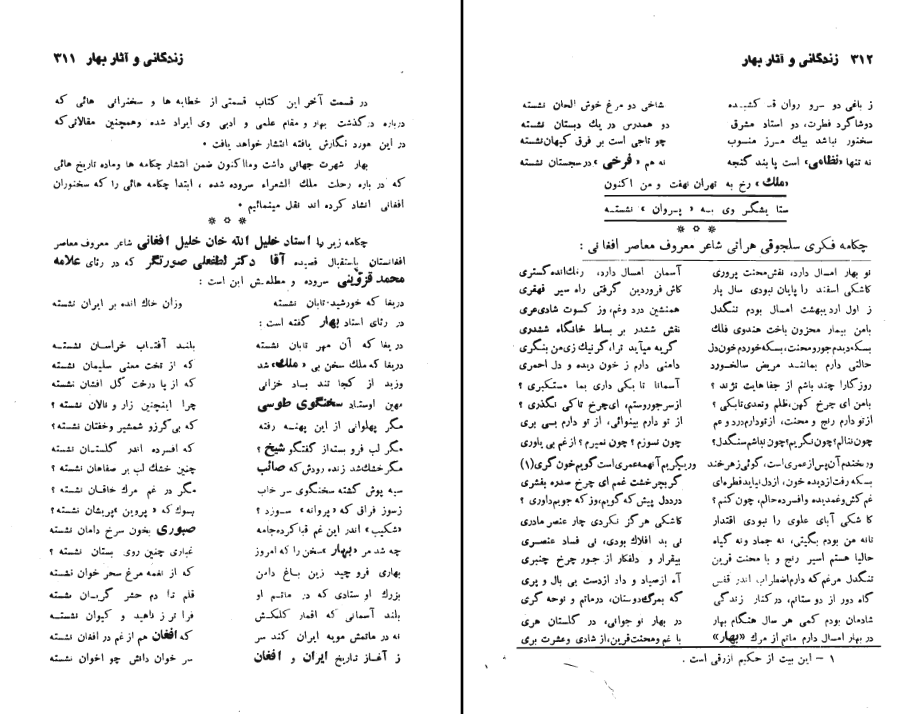 زندگانی و آثار بهار ۳۱۱
در قسمت آخر این کتاب قسمتی از خطابه ها و سخنرانی هائی که
درباره درگذشت بهار و مقام علمی و ادبی وی ایراد شده وهمچنین مقالاتی که
در این مورد نگارش یافته انتشار خواهد یافت .
بهار شهرت جهانی داشت ومااکنون ضمن انتشار چکامه ها وماده تاریخ هائی
که در باره رحلت ملك الشعراء سروده شده ، ابتدا چکامه هائی را که سخنوران
افغانی انشاد کرده اند نقل مینمائیم .
* * *
چکامه زیر را استاد خلیل الله خان خلیل افغانی شاعر معروف معاصر
افغانستان باستقبال قصیده آقا دکتر لطفعلی صورتگر که در رثای علامه
محمد قزوینی سروده و مطلعش این است :
دریغا که خورشید تابان نشسته وزان خاك انده بر ایران نشسته
در رثای استاد بهار گفته است :
دریغا که آن مهر تابان نشسته بلند آفتاب خراسان نشسته
دریغا که ملك سخن بی « ملك » شد که از تخت معنی سلیمان نشسته
وزید از کجا تند باد خزانی که از پا درخت گل افشان نشسته
مهین اوستاد سخنگوی طوسی چرا اینچنین زار و نالان نشسته ؟
مگر پهلوانی از این پهنه رفته که بی گرزو شمشیر وخفتان نشسته ؟
مگر لب فرو بسته از گفتگو شیخ ؟ که افسرده اندر گلستان نشسته
مگر خشك شد زنده رودش که صائب چنین خشك لب بر صفاهان نشسته ؟
سیه پوش گشته سخنگوی سر خاب مگر در غم مرك خاقان نشسته ؟
زسوز فراق که « پروانه » سوزد ؟ بسوك که « پروین » پریشان نشسته ؟
« شکیب » اندر این غم قبا کرده جامه صبوری بخون سرخ دامان نشسته
چه شد مر « بهار » سخن را که امروز غباری چنین روی بستان نشسته ؟
بهاری فرو چید زین باغ دامن که از نغمه مرغ سحر خوان نشسته
بزرك او ستادی که در ماتم او قلم تا دم حشر گریان نشسته
بلند آسمانی که اقمار کلکش فرا تر ز ناهید و کیوان نشسته
نه در ماتمش مویه ایران کند سر که افغان هم از غم در افغان نشسته
ز آغاز تاریخ ایران و افغان سر خوان دانش چو اخوان نشسته
۳۱۲ زندگانی و آثار بهار
ز باغی دو سرو روان قد کشیده شاخی دو مرغ خوش الحان نشسته
دوشاگرد فطرت، دو استاد مشرق دو همدرس در یك دبستان نشسته
سخنور نباشد بیك مرز منسوب چو تاجی است بر فرق کیهان نشسته
نه تنها « نظامی » است پا بند گنجه نه هم « فرخی » در سجستان نشسته
« ملك » رخ به تهران نهفت و من اکنون
ستا یشگر وی به « پروان » نشسته
* * *
چکامه فکری سلجوقی هراتی شاعر معروف معاصر افغانی :
نو بهار امسال دارد، نقش محنت پروری آسمان امسال دارد، رنك انده گستری
کاشکی اسفند را پایان نبودی سال پار کاش فروردین گرفتی راه سیر قهقری
ز اول اردیبهشت امسال بودم تنگدل همنشین درد وغم، وز کسوت شادی عری
بامن بیمار محزون باخت هندوی فلك نقش ششدر بر بساط خانگاه ششدری
بسکه دیدم جورو محنت، بسکه خوردم خون دل گریه میآید ترا، گر نیك زی من بنگری
حالتی دارم بمانند مریض سالخورد دامنی دارم ز خون دیده و دل احمری
روزگارا چند باشم از جفاهایت نژند ؟ آسمانا تا بکی داری بما مستکبری ؟
بامن ای چرخ کهن، ظلم وتعدی تابکی ؟ از سر جوروستم، ای چرخ تاکی نگذری ؟
از تو دارم رنج و محنت، از تودارم درد و غم از تو دارم بینوائی، از تو دارم بسی بری
چون ننالم؟ چون نگریم؟ چون نباشم سنگدل؟ چون نسوزم ؟ چون نمیرم ؟ از غم بی یاوری
ورخندم آن پس از عمری است، گوئی زهرخند وربگریم آنهمه عمری است گویم خون گری (۱)
بسکه رفت از دیده خون، از دل نیاید قطره ای گریچرخشت غمم ای چرخ صدره بفشری
غم کش وغمدیده وافسرده حالم، چون کنم ؟ درددل پیش که گویم، وز که جویم داوری ؟
کاشکی آبای علوی را نبودی اقتدار کاشکی هرگز نکردی چار عنصر مادری
تانه من بودم بگیتی، نه جماد ونه گیاه نی بد افلاك بودی، نی فساد عنصری
حالیا هستم اسیر رنج و با محنت قرین بیقرار و دلفکار از جور چرخ چنبری
تنگدل مرغم که دارم اضطراب اندر قفس آه ازصیاد و داد ازدست بی بال و پری
گاه دور از دوستانم، درکنار زندگی که بمرگ دوستان، درماتم و نوحه گری
شادمان بودم کمی هر سال هنگام بهار در بهار نوجوانی، در گلستان هری
در بهار امسال دارم ماتم از مرك « بهار » با غم ومحنت قرین، از شادی وعشرت بری
۱ - این بیت از حکیم ازرقی است .